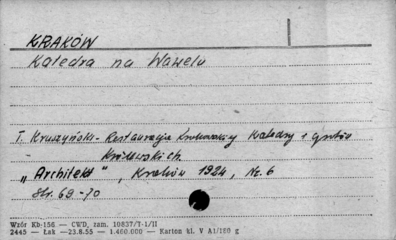 KRAKÓW
Katedra na Wawelu
T. Kruszyński - Restauracja krakowskiej Katedry i grobów
Królewskich.
„Architekt", Kraków 1924, Nr. 6
Str. 69-70
Wzór Kb-156 — CWD, zam. 10837/T-1/II
2445 — Łak —23.8.55 — 1.460.000 — Karton kl. V A1/180 g